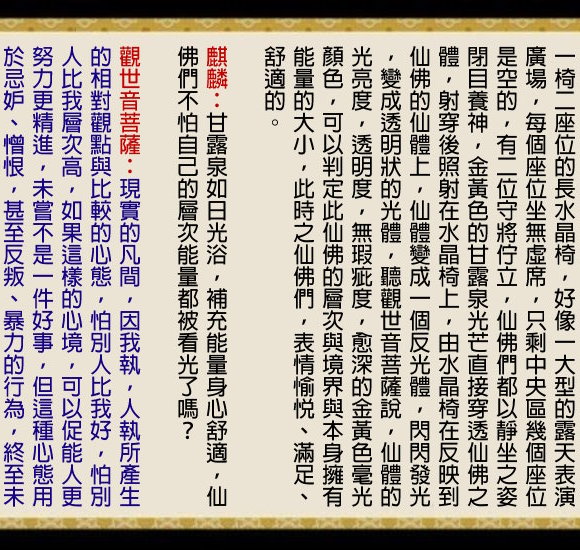 一椅二座位的長水晶椅，好像一大型的露天表演
廣場，每個座位坐無虛席，只剩中央區幾個座位
是空的，有二位守將佇立，仙佛們都以靜坐之姿
閉目養神，金黃色的甘露泉光芒直接穿透仙佛之
體，射穿後照射在水晶椅上，由水晶椅在反映到
仙佛的仙體上，仙體變成一個反光體，閃閃發光
，變成透明狀的光體，聽觀世音菩薩說，仙體的
光亮度，透明度，無瑕疵度，愈深的金黃色毫光
顏色，可以判定此仙佛的層次與境界與本身擁有
能量的大小，此時之仙佛們，表情愉悅、滿足、
舒適的。
麒麟：甘露泉如日光浴，補充能量身心舒適，仙
佛們不怕自己的層次能量都被看光了嗎？
觀世音菩薩：現實的凡間，因我執，人執所產生
的相對觀點與比較的心態，怕別人比我好，怕別
人比我層次高，如果這樣的心境，可以促能人更
努力更精進，未嘗不是一件好事，但這種心態用
於忌妒、憎恨，甚至反叛、暴力的行為，終至未